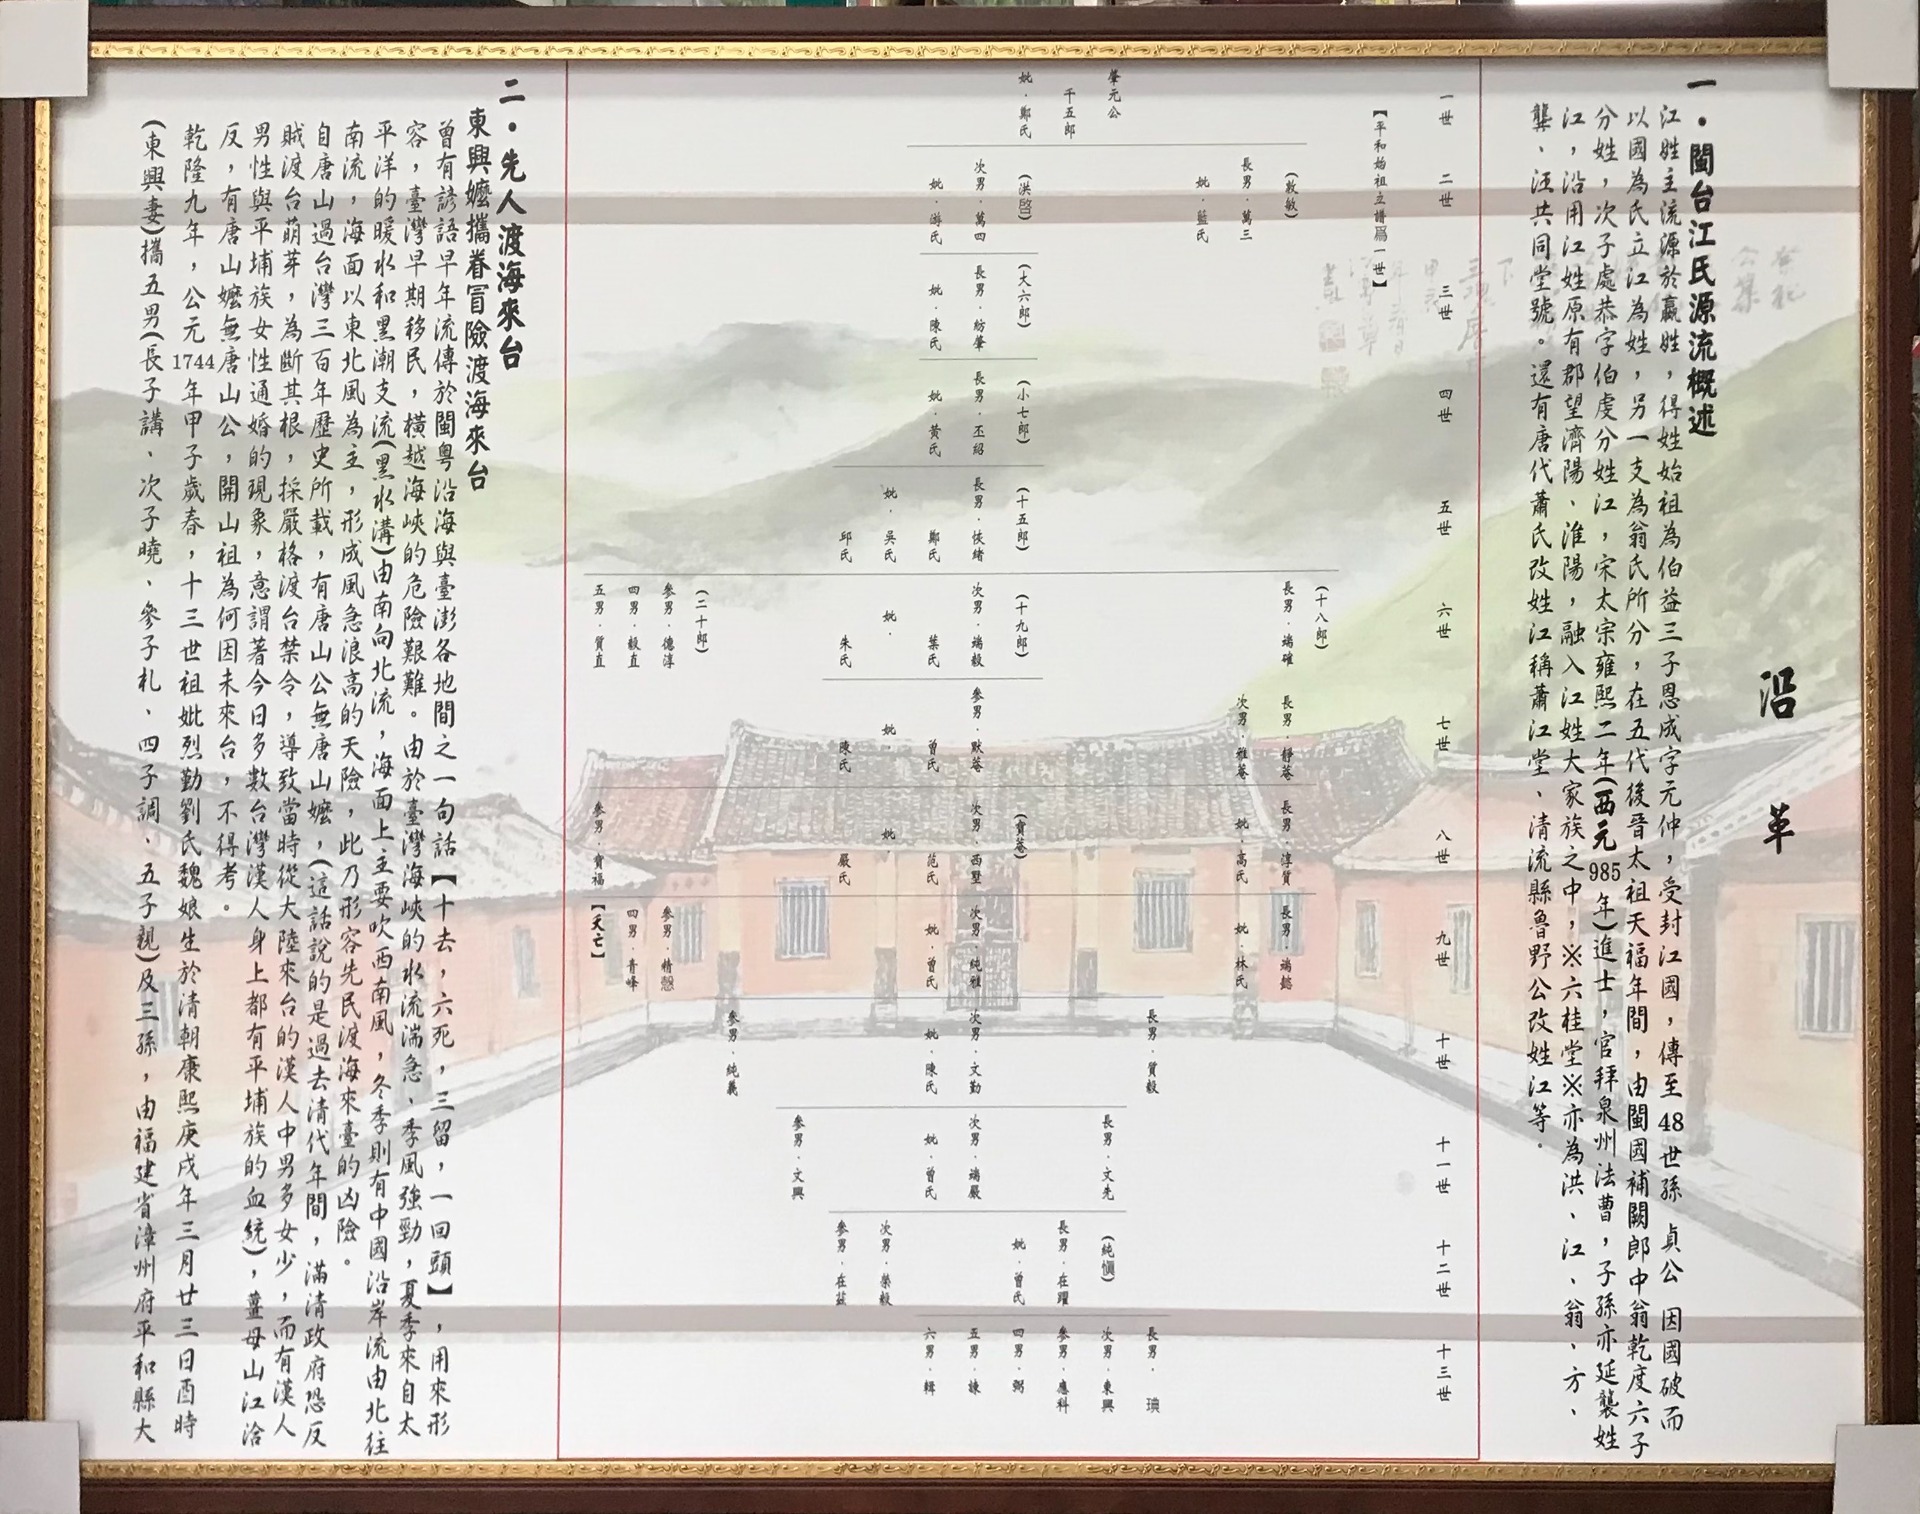 沿革
一．閩台江氏源流概述
江姓主流源於嬴姓，得姓始祖為伯益三子恩成字元仲，受封江國，傳至48世孫 貞公 因國破而
以國為氏立江為姓，另一支為翁氏所分，在五代後晉太祖天福年間，由閩國補闕郎中翁乾度六子
分姓，次子處恭字伯虔分姓江，宋太宗雍熙二年(西元985年)進士，官拜泉州法曹，子孫亦延襲姓
江，沿用江姓原有郡望濟陽、淮陽，融入江姓大家族之中，※六桂堂※亦為洪、江、翁、方、
龔、汪共同堂號。還有唐代蕭氏改姓江稱蕭江堂、清流縣魯野公改姓江等。
一世
二世
三世
四世
五世
六世
七世
八世
九世
十世
十一世
十二世
十三世
【平和始祖立譜為一世】
肇元公
千五郎
妣．鄭氏
(敦敏)
長男．萬三
妣．藍氏
(洪啓)
次男．萬四
妣．游氏
(大六郎)
長男．紡肇
妣．陳氏
(小七郎)
長男．丕紹
妣．黃氏
(十五郎)
長男．恢緒
妣．
鄭氏
吳氏
邱氏
(十八郎)
長男．端確
(十九郎)
次男．端毅
妣．
葉氏
朱氏
(二十郎)
參男．德淳
四男．毅直
五男．質直
長男．靜菴
次男．雅菴
參男．默菴
妣．
曾氏
陳氏
長男．淳質
妣．高氏
(實菴)
次男．西墅
妣．
范氏
嚴氏
參男．實福
長男．端懿
妣．林氏
次男．純雅
妣．曾氏
參男．精愨
四男．青峰
【夭亡】
長男．質毅
次男．文勤
妣．陳氏
參男．純義
長男．文先
次男．端嚴
妣．曾氏
參男．文興
(純慎)
長男．在躍
妣．曾氏
次男．榮毅
參男．在茲
長男．璜
次男．東興
參男．應科
四男．弼
五男．諫
六男．輯
二．先人渡海來台
東興嬤攜眷冒險渡海來台
曾有諺語早年流傳於閩粵沿海與臺澎各地間之一句話【十去，六死，三留，一回頭】，用來形
容，臺灣早期移民，橫越海峽的危險艱難。由於臺灣海峽的水流湍急、季風強勁，夏季來自太
平洋的暖水和黑潮支流(黑水溝)由南向北流，海面上主要吹西南風，冬季則有中國沿岸流由北往
南流，海面以東北風為主，形成風急浪高的天險，此乃形容先民渡海來臺的凶險。
自唐山過台灣三百年歷史所載，有唐山公無唐山嬤，(這話說的是過去清代年間，滿清政府恐反
賊渡台萌芽，為斷其根，採嚴格渡台禁令，導致當時從大陸來台的漢人中男多女少，而有漢人
男性與平埔族女性通婚的現象，意謂著今日多數台灣漢人身上都有平埔族的血統)，薑母山江洽
反，有唐山嬤無唐山公，開山祖為何因未來台，不得考。
乾隆九年，公元1744年甲子歲春，十三世祖妣烈勤劉氏魏娘生於清朝康熙庚戌年三月廿三日酉時
(東興妻)攜五男(長子講、次子曉、參子札、四子調、五子親)及三孫，由福建省漳州府平和縣大